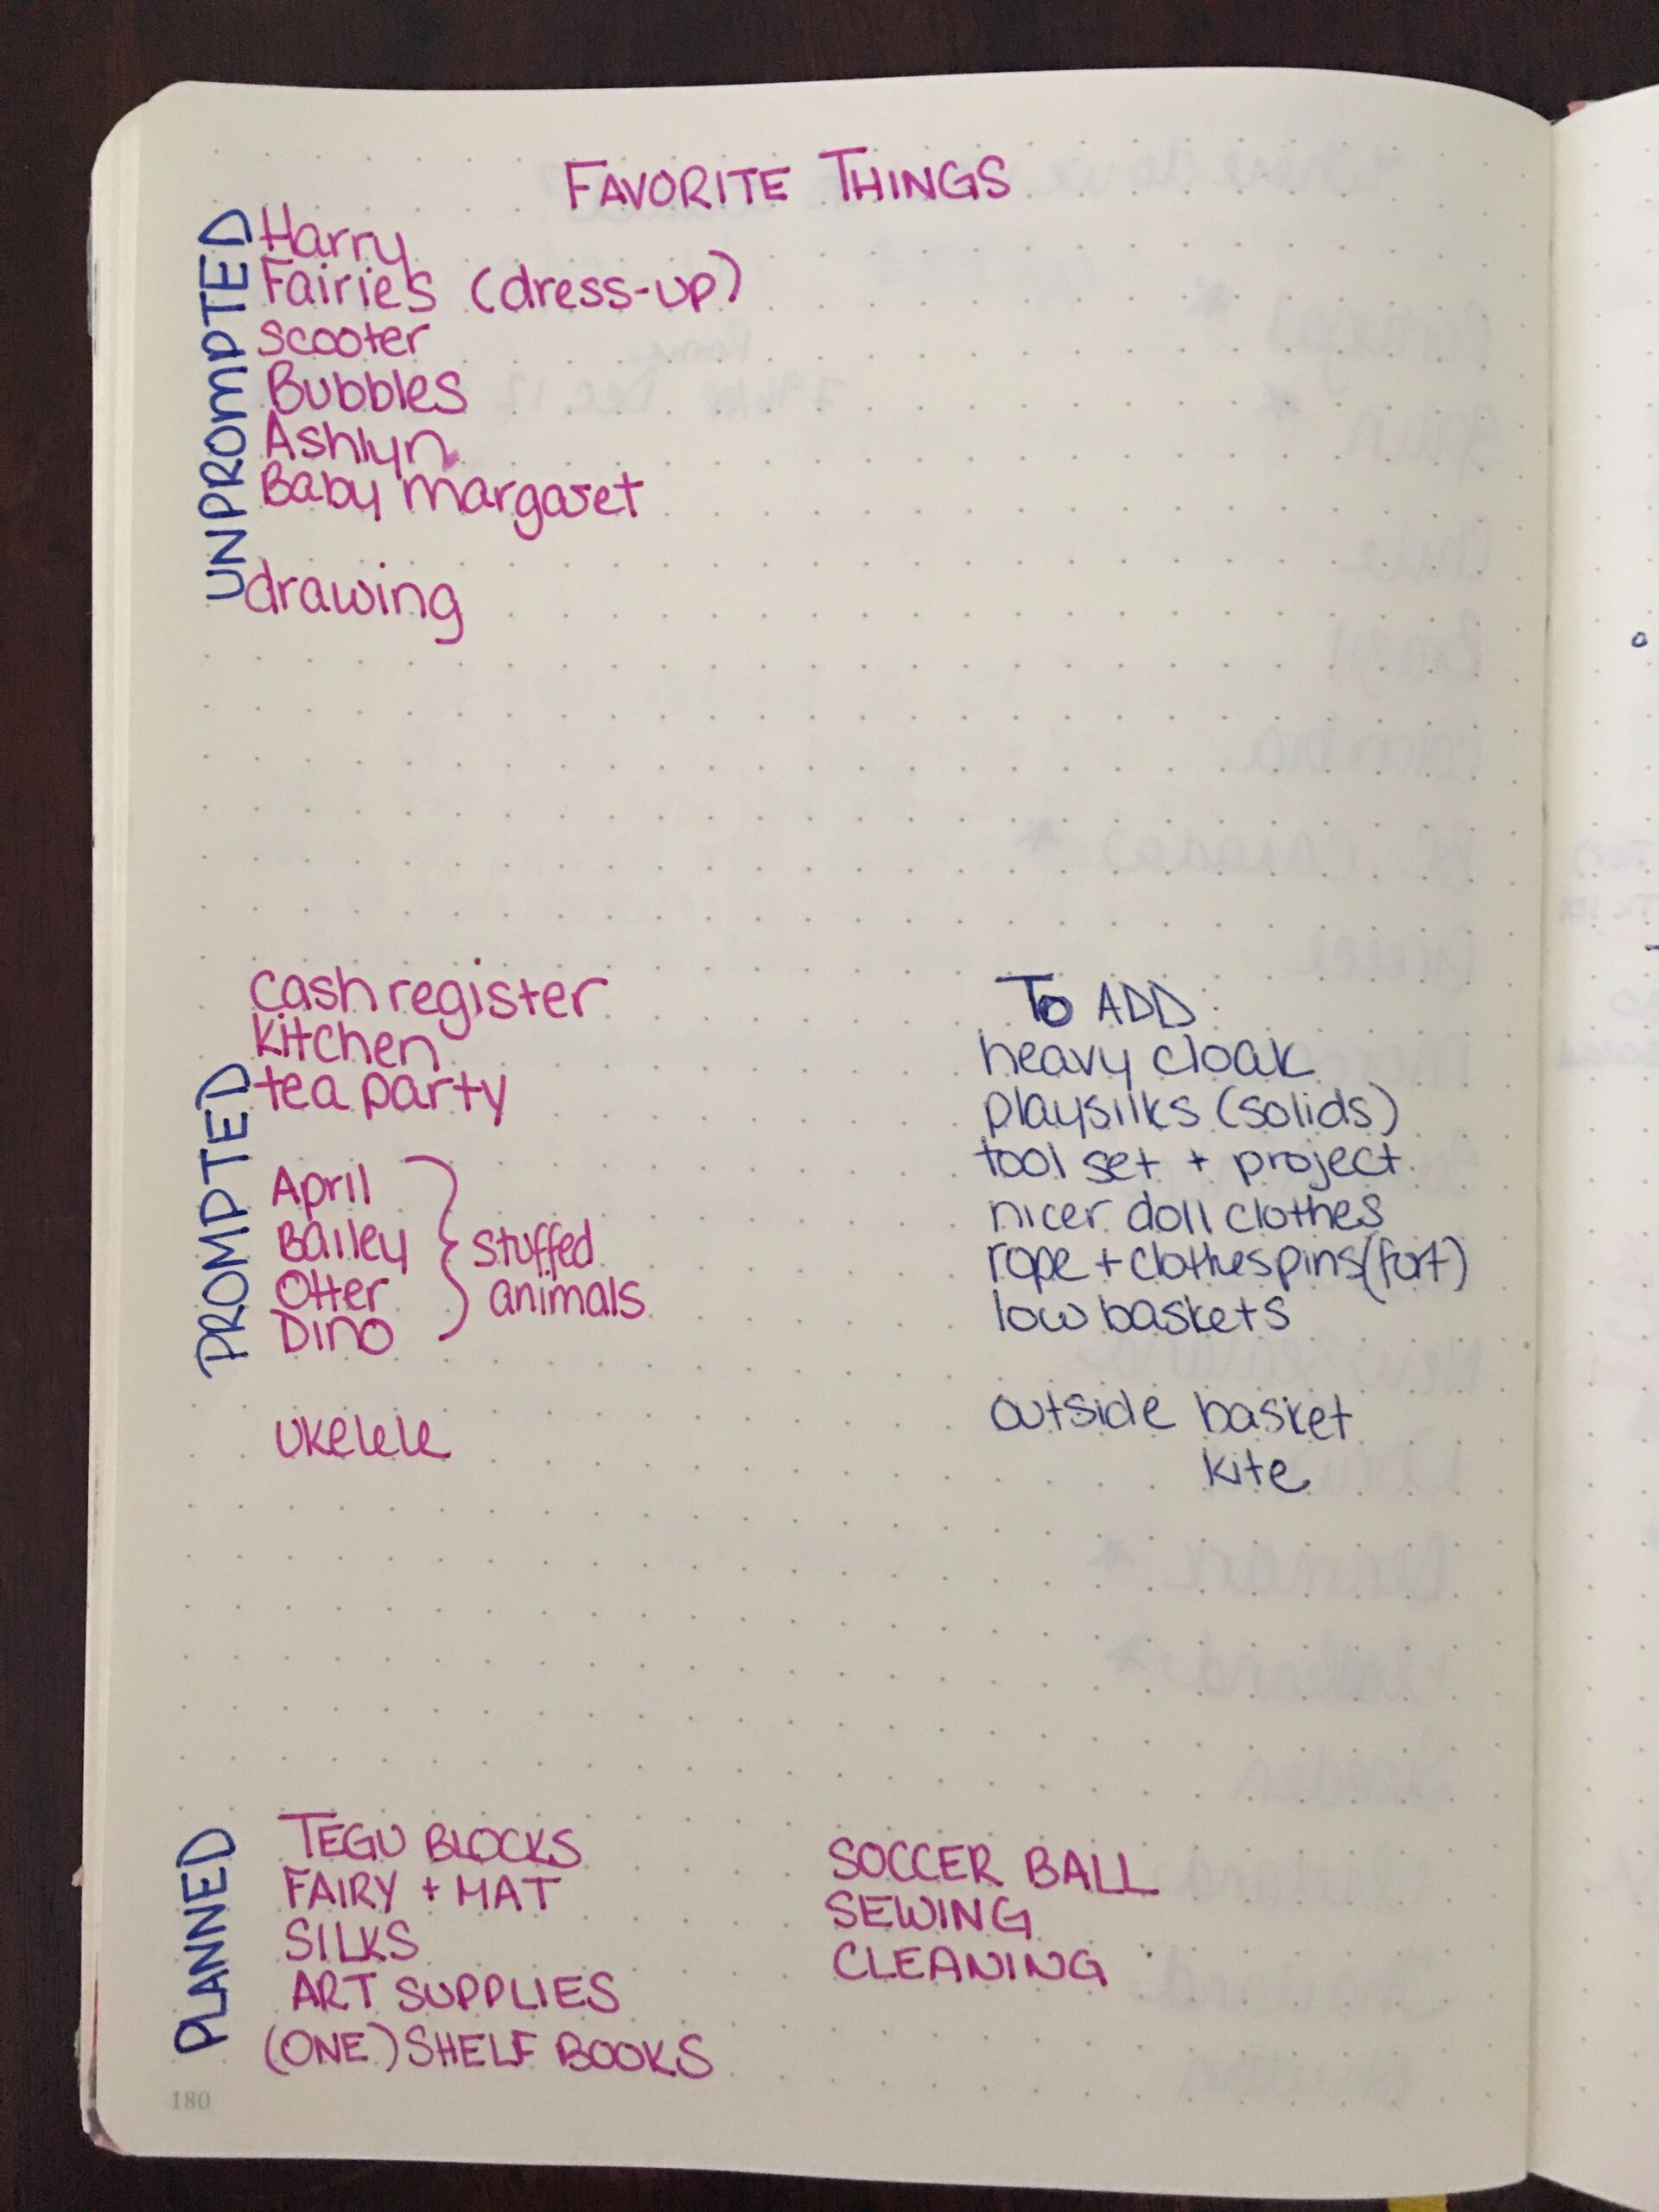 FAVORITE THINGS
UNPROMPTED
Harry
Fairies (dress-up)
scooter
Bubbles
Ashlyn
Baby Margaret
drawing
PROMPTED
cash register
kitchen
tea party
April
Bailey
Otter
Dino
stuffed
animals
ukelele
To ADD:
heavy cloak
playsilks (solids)
tool set + project
nicer doll clothes
rope + clothespins (fort)
low baskets
outside basket
kite
PLANNED
TEGU BLOCKS
FAIRY + MAT
SILKS
ART SUPPLIES
(ONE) SHELF BOOKS
SOCCER BALL
SEWING
CLEANING
180